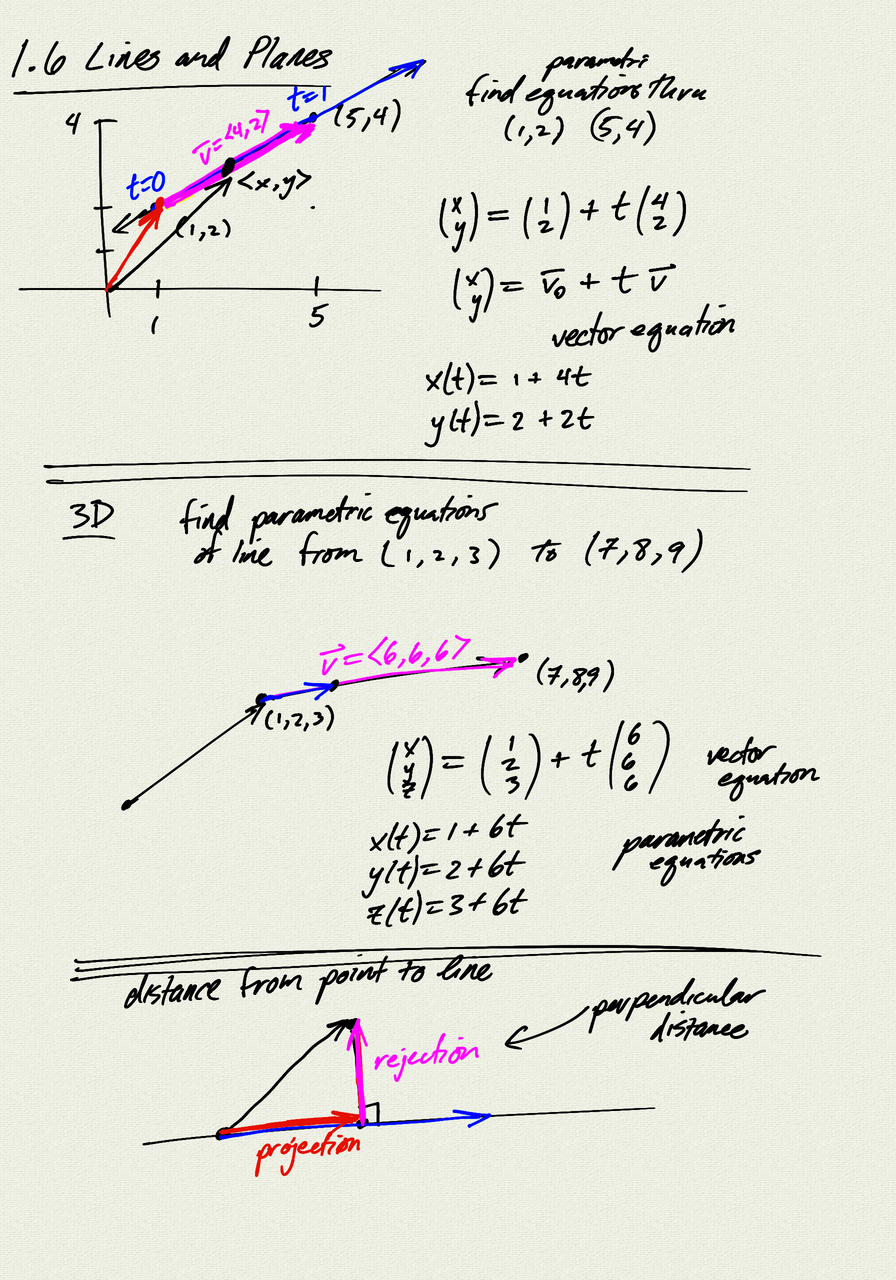 1.6 Lines and Planes
4
t=0
t=1
v⃗=<4,2>
(5,4)
<x,y>
(1,2)
1
5
parametri
find equations thru
(1,2) (5,4)
(x y) = (1 2) + t (4 2)
(x y) = v⃗₀ + t v⃗
vector equation
x(t) = 1 + 4t
y(t) = 2 + 2t
3D find parametric equations
of line from (1,2,3) to (7,8,9)
v⃗ = <6,6,6>
(7,8,9)
(1,2,3)
(x y z) = (1 2 3) + t (6 6 6)
vector
equation
x(t) = 1 + 6t
y(t) = 2 + 6t
z(t) = 3 + 6t
parametric
equations
distance from point to line
perpendicular
distance
rejection
projection